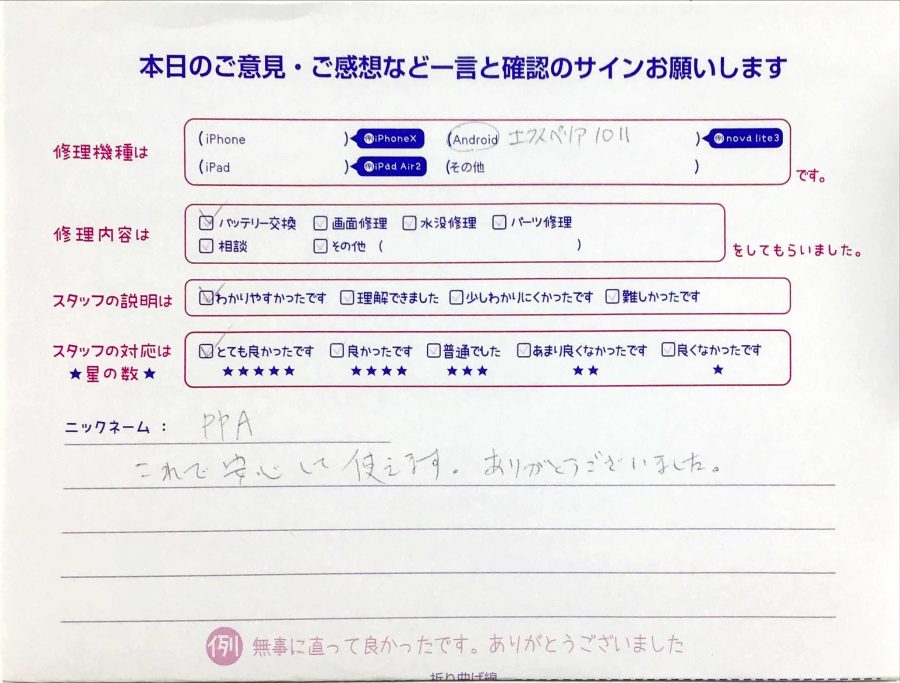 本日のご意見・ご感想など一言と確認のサインお願いします
修理機種は
(iPhone ) 例iPhoneX (Android エクスペリア 10 11 ) 例nova lite3
(iPad ) 例iPad Air2 (その他 ) です。
修理内容は
バッテリー交換 画面修理 水没修理 パーツ修理
相談 その他 ( ) をしてもらいました。
スタッフの説明は わかりやすかったです 理解できました 少しわかりにくかったです 難しかったです
スタッフの対応は とても良かったです 良かったです 普通でした あまり良くなかったです 良くなかったです
★星の数★ ★★★★★ ★★★★ ★★★ ★★ ★
ニックネーム: PPA
これで安心して使えます。ありがとうございました。
例 無事に直って良かったです。ありがとうございました
折り曲げ線